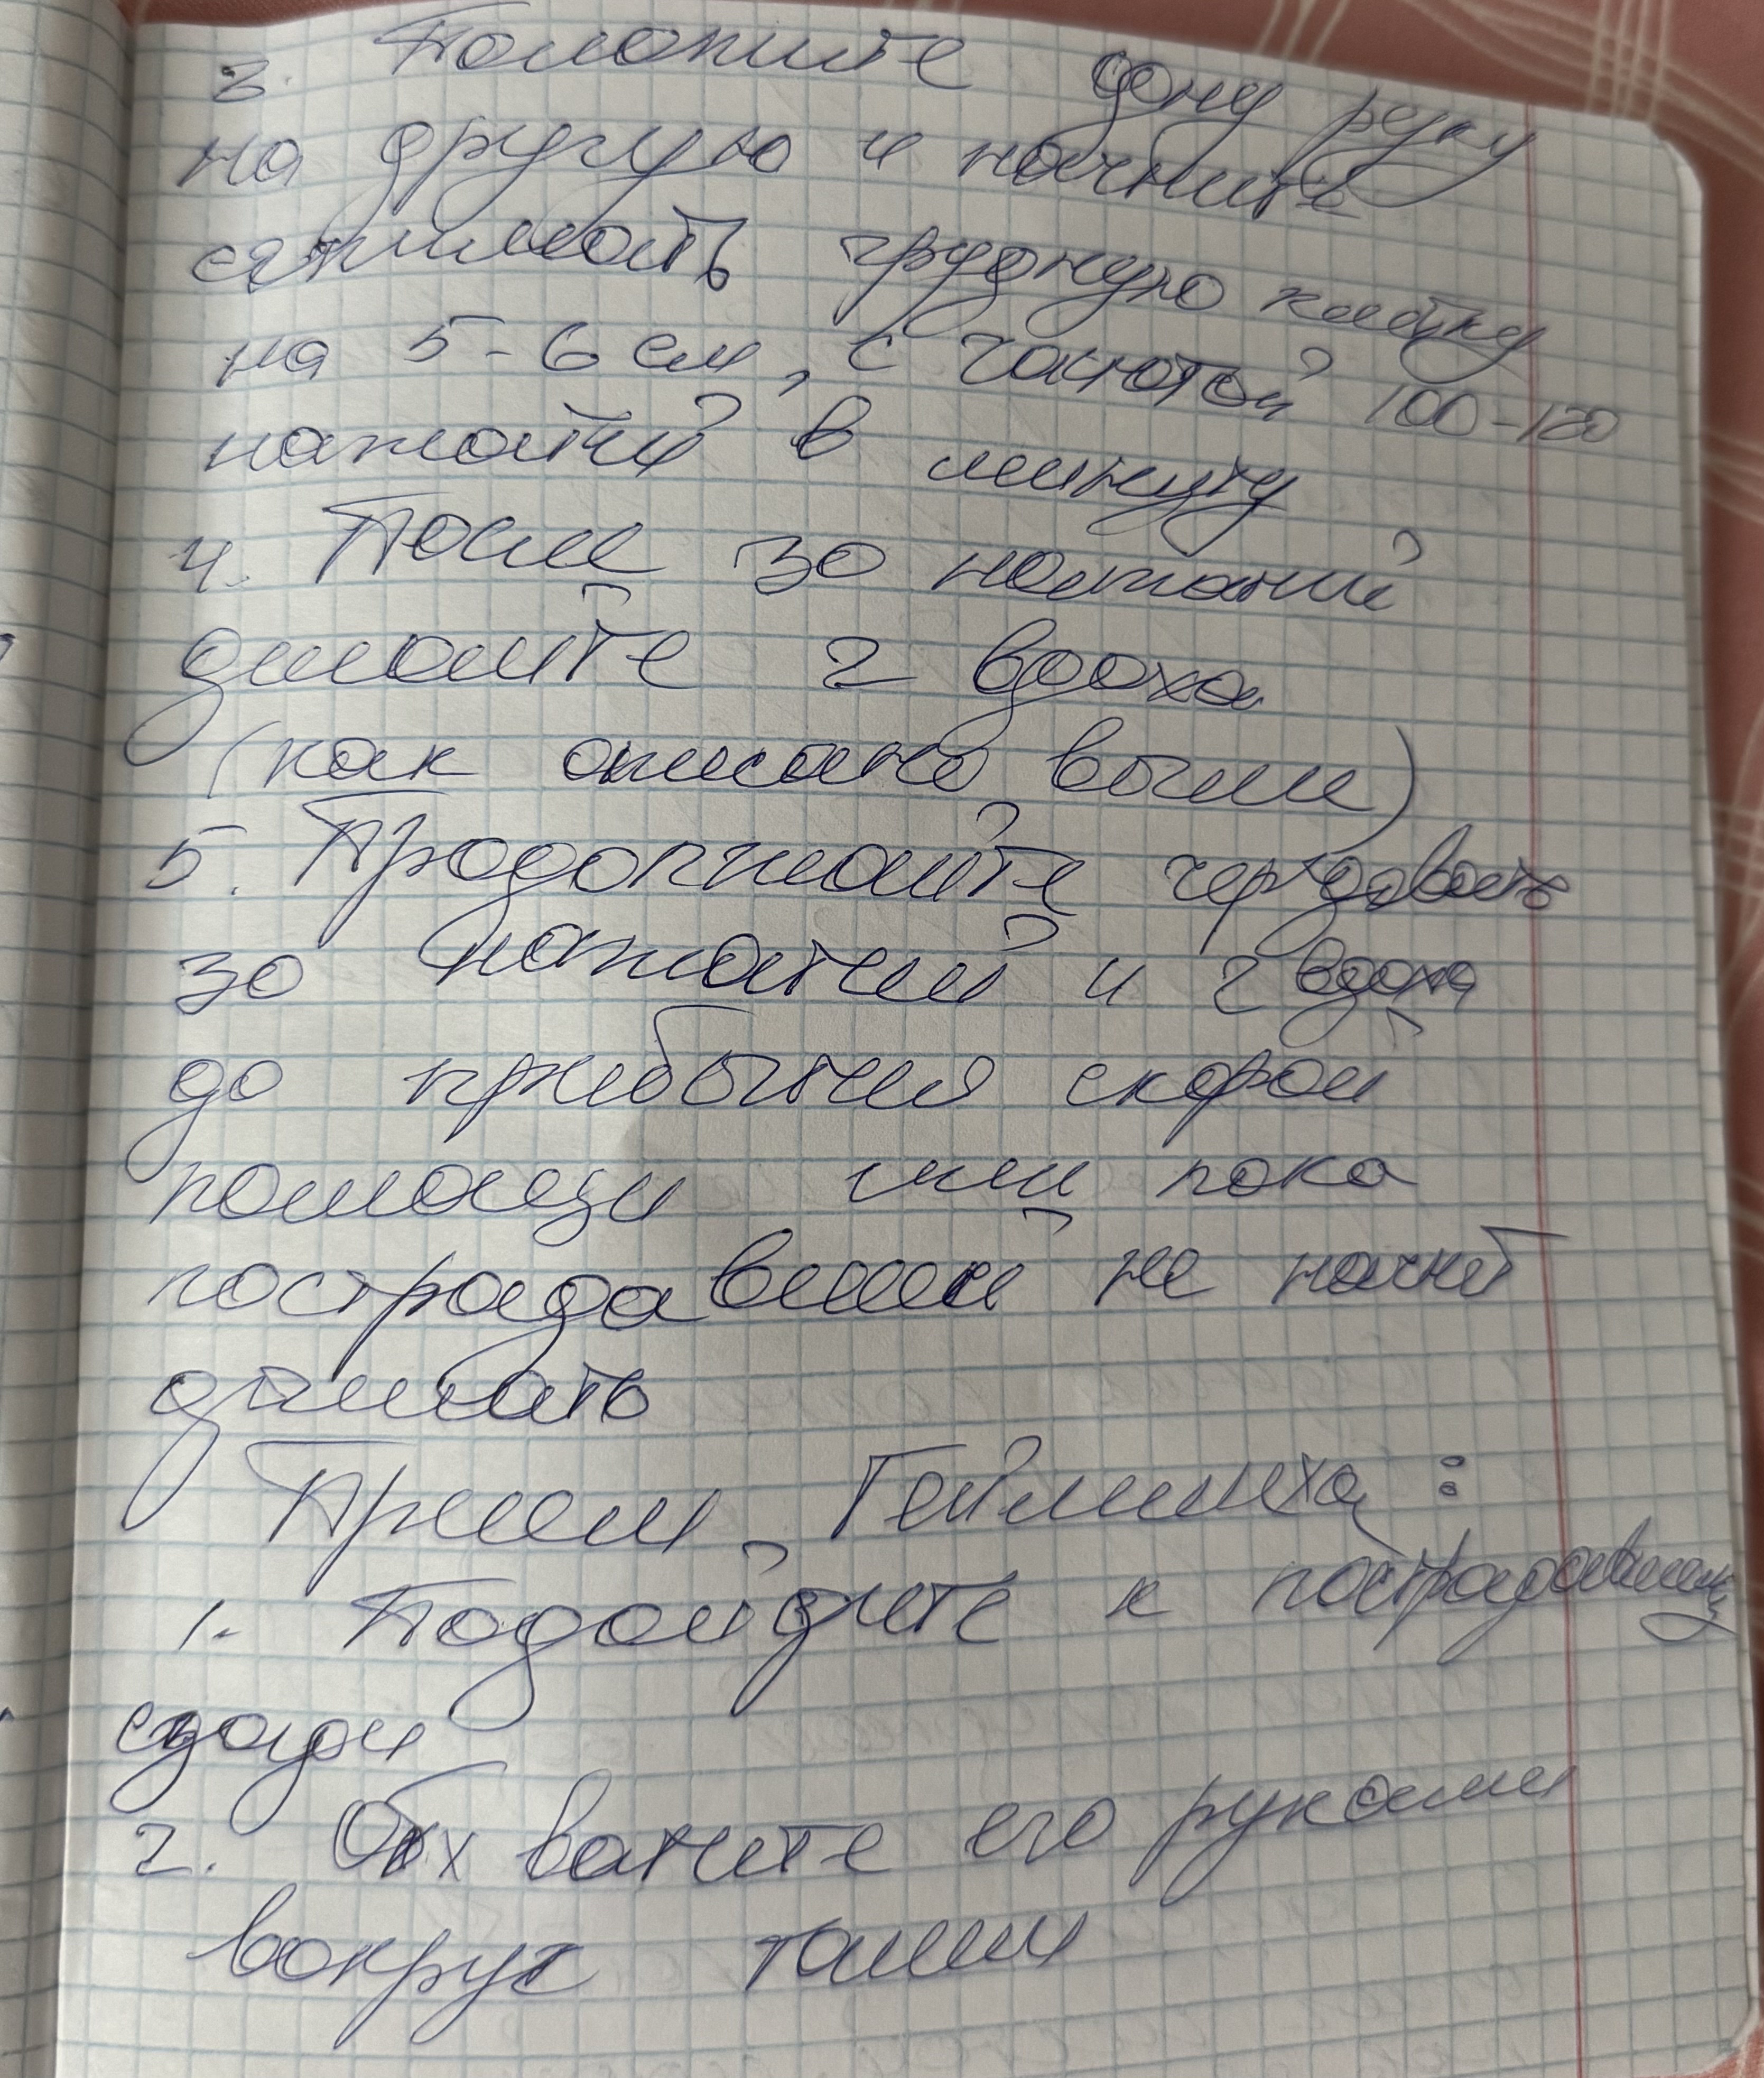 3. Положите одну руку
на другую и начните
сжимать грудную клетку
на 5-6 см, с частотой 100-120
нажатий в минуту
4. После 30 нажатий
делайте 2 вдоха
(как описано выше)
5. Продолжайте чередовать
30 нажатий и 2 вдоха
до прибытия скорой
помощи или пока
пострадавший не начнет
дышать
Прием Геймлиха:
1. Подойдите к пострадавшему
сзади
2. Обхватите его руками
вокруг талии